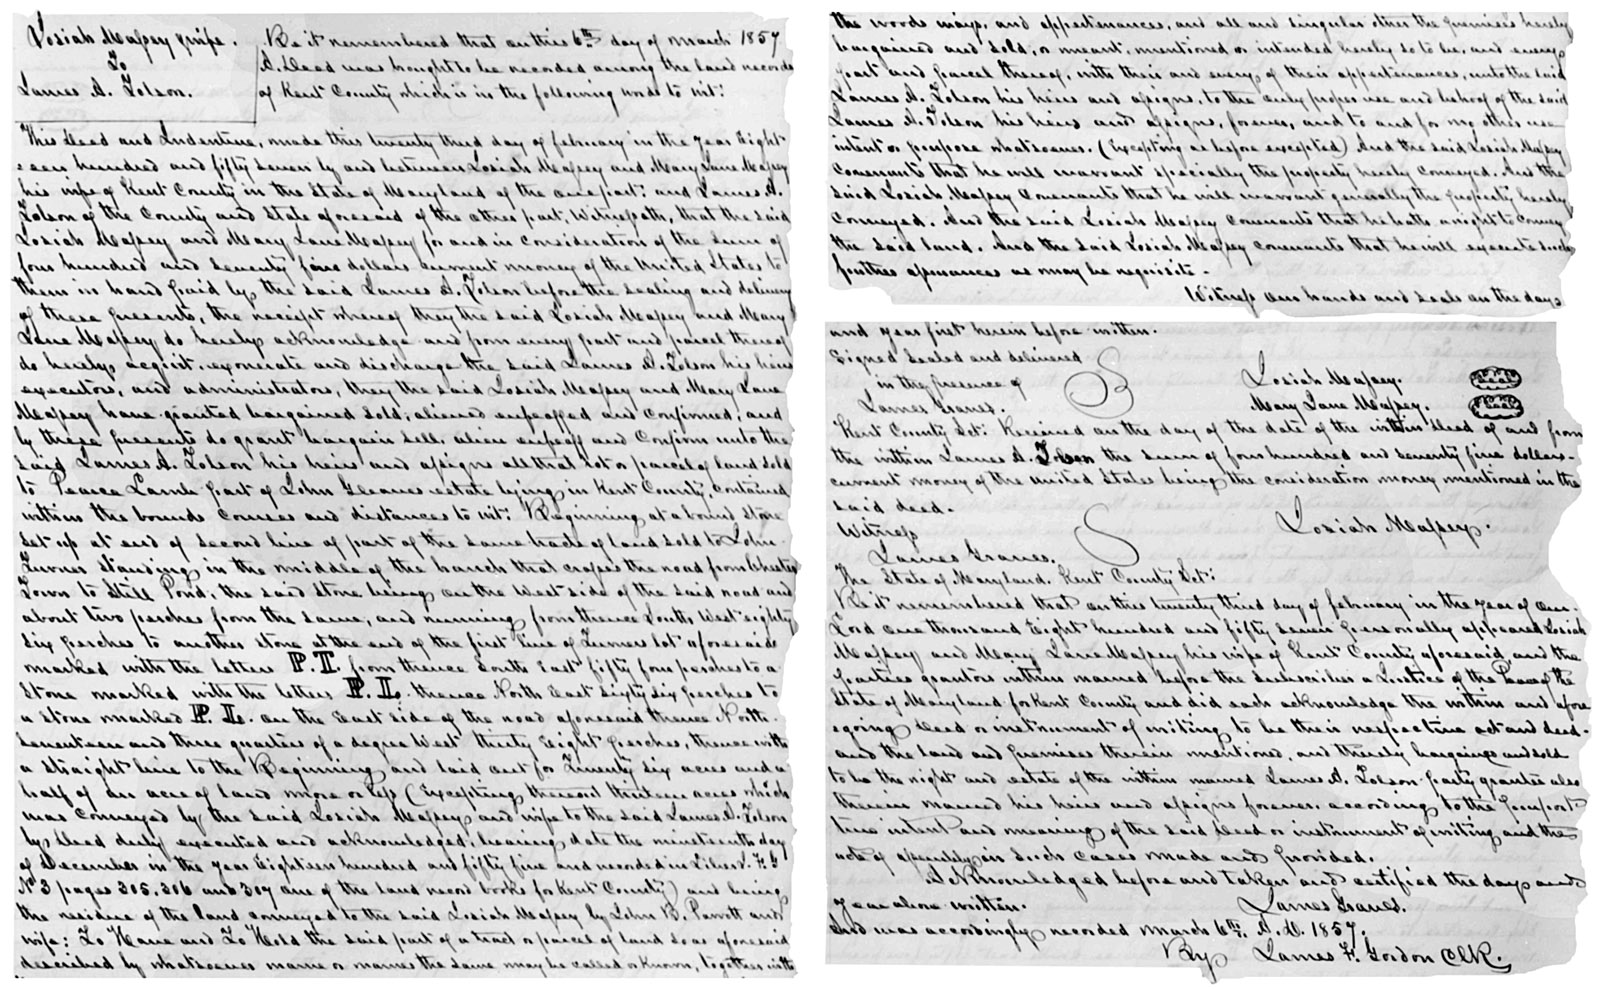 Josiah Massey & wife.
To
James A. Tolson.
Be it remembered that on this 6th day of March 1857
A Deed was brought to be recorded among the land records
of Kent County which is in the following words to wit:
This Deed and Indenture, made this twenty third day of february in the year Eight-
een hundred and fifty seven by and between Josiah Massey and Mary Jane Massey
his wife of Kent County in the State of Maryland of the one part: and James A.
Tolson of the County and State aforesaid of the other part, Witnesseth, that the said
Josiah Massey and Mary Jane Massey for and in consideration of the sum of
four hundred and seventy five dollars current money of the United States to
them in hand paid by the said James A. Tolson before the sealing and delivery
of these presents, the receipt whereof they, the said Josiah Massey and Mary
Jane Massey do hereby acknowledge and from every part and parcel thereof
do hereby acquit, exonerate and discharge the said James A. Tolson his heirs
executors, and administrators, they the said Josiah Massey and Mary Jane
Massey have granted bargained sold, aliened enfeoffed and confirmed, and
by these presents do grant bargain sell, alien enfeoff and confirm unto the
said James A. Tolson his heirs and assigns all that lot or parcel of land sold
to Pearce Lamb part of John Gleaves estate lying in Kent County, contained
within the bounds courses and distances to wit: Beginning at a bound stone
set up at end of second line of part of the same tract of land sold to John
Turner standing in the middle of the branch that crosses the road from Chester
Town to Still Pond, the said stone being on the West side of the said road and
about two perches from the same, and running from thence South West eighty
six perches to another stone at the end of the first line of Turners lot aforesaid
marked with the letters P.T. from thence South East fifty four perches to a
stone marked with the letters P.L. thence North East sixty six perches to
a stone marked P.L. on the East side of the road aforesaid thence North
seventeen and three quarters of a degree West thirty eight perches, thence with
a straight line to the Beginning and laid out for Twenty six acres and a
half of an acre of land more or less (Excepting thereout thirteen acres which
was conveyed by the said Josiah Massey and wife to the said James A. Tolson
by deed duly executed and acknowledged, bearing date the nineteenth day
of December in the year Eighteen hundred and fifty five and recorded in Liber J. F. G.
No 3 pages 305, 306 and 307 one of the land record books for Kent County) and being
the residue of the land conveyed to the said Josiah Massey by John B. Parrott and
wife: To Have and To Hold the said part of a tract or parcel of land so as aforesaid
described by whatsoever name or names the same may be called or known, together with
the woods ways, and appertenances, and all and singular other the premises hereby
bargained and sold, or meant, mentioned or intended hereby so to be, and every
part and parcel thereof, with their and every of their appertenances, unto the said
James A. Tolson his heirs and assigns, to the only proper use and behoof of the said
James A. Tolson his heirs and assigns, forever, and to and for no other use
intent or purpose whatsoever. (Excepting as before excepted) And the said Josiah Massey
covenants that he will warrant specially the property hereby conveyed. And the
said Josiah Massey covenants that he will warrant generally the property hereby
conveyed. And the said Josiah Massey covenants that he hath a right to convey
the said land. And the said Josiah Massey covenants that he will execute such
further assurances as may be requisite.
Witness our hands and seals on the day
and year first herein before written.
Signed sealed and delivered
in the presence of
James Graves.
Josiah Massey. Seal
Mary Jane Massey. Seal
Kent County Sct: Received on the day of the date of the within deed of and from
the within James A. Tolson the sum of four hundred and seventy five dollars
current money of the United States being the consideration money mentioned in the
said deed.
Witness
Josiah Massey.
James Graves.
The State of Maryland. Kent County Sct:
Be it remembered that on this twenty third day of february in the year of our
Lord one thousand Eight hundred and fifty seven personally appeared Josiah
Massey and Mary Jane Massey his wife of Kent County aforesaid, and the
parties grantors within named before the subscriber a Justice of the Peace of the
State of Maryland for Kent County and did each acknowledge the within and afore
=going deed or instrument of writing to be their respective act and deed
and the land and premises therein mentioned, and thereby bargained and sold
to be the right and estate of the within named James A. Tolson party grantee also
therein named his heirs and assigns forever, according to the purport
true intent and meaning of the said deed or instrument of writing and the
acts of assembly in such cases made and provided.
Acknowledged before and taken and certified the day and
year above written.
James Graves.
And was accordingly recorded March 6th A.D. 1857.
By James F. Gordon Clk.